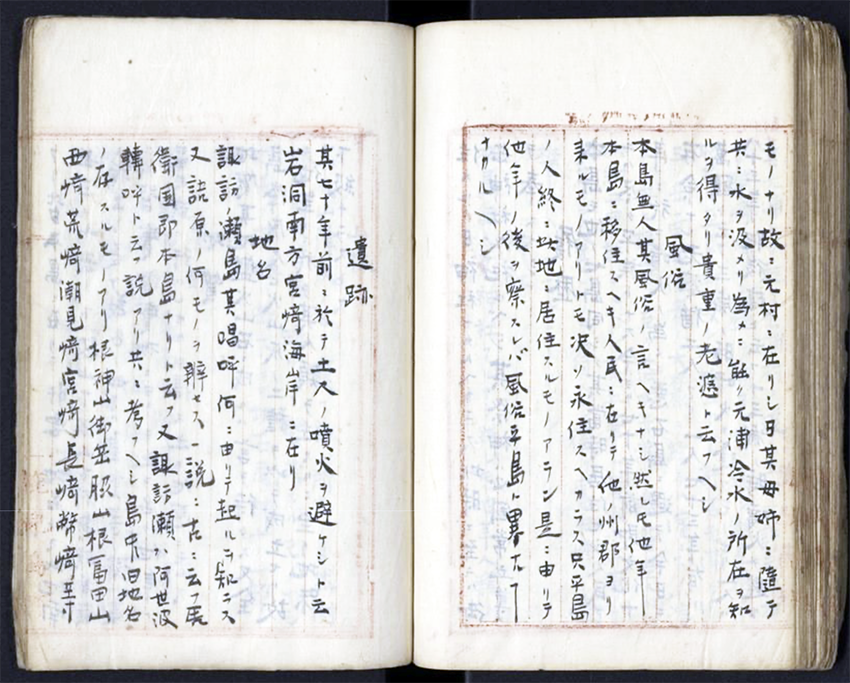 モノナリ故ニ元村ニ在リシ日其母姉ニ隨テ
共ニ水ヲ汲メリ為メニ能ク元浦冷水ノ所在ヲ知
ルヲ得タリ貴重ノ老婆ト云フヘシ
風俗
本島無人其風俗ノ言ヘキナシ然レモ他年
本島ニ移住スヘキ人民ニ在リテ他ノ州郡ヨリ
来ルモノアリトモ决シ永住スヘカラス只平島
ノ人終ニ此地ニ居住スルモノアラン是ニ由リテ
他年ノ後ヲ察スレバ風俗平島ト異ナルヿ
ナカルヘシ
遺跡
其七十年前ニ於テ土人ノ噴火ヲ避ケシト云
岩洞南方宮﨑海岸ニ在リ
地名
諏訪ノ瀬島其唱呼何ニ由リテ起ルヲ知ラス
又語原ノ何モノヲ辨セス一說ニ古ニ云フ
衛国即本島ナリト云フ又諏訪瀬ハ阿世波
轉呼ト云フ說アリ共ニ考フヘシ島中旧地名
ノ存スルモノアリ根神山御岳脇山根冨田山
西﨑荒﨑潮見﨑宮﨑長﨑幣﨑